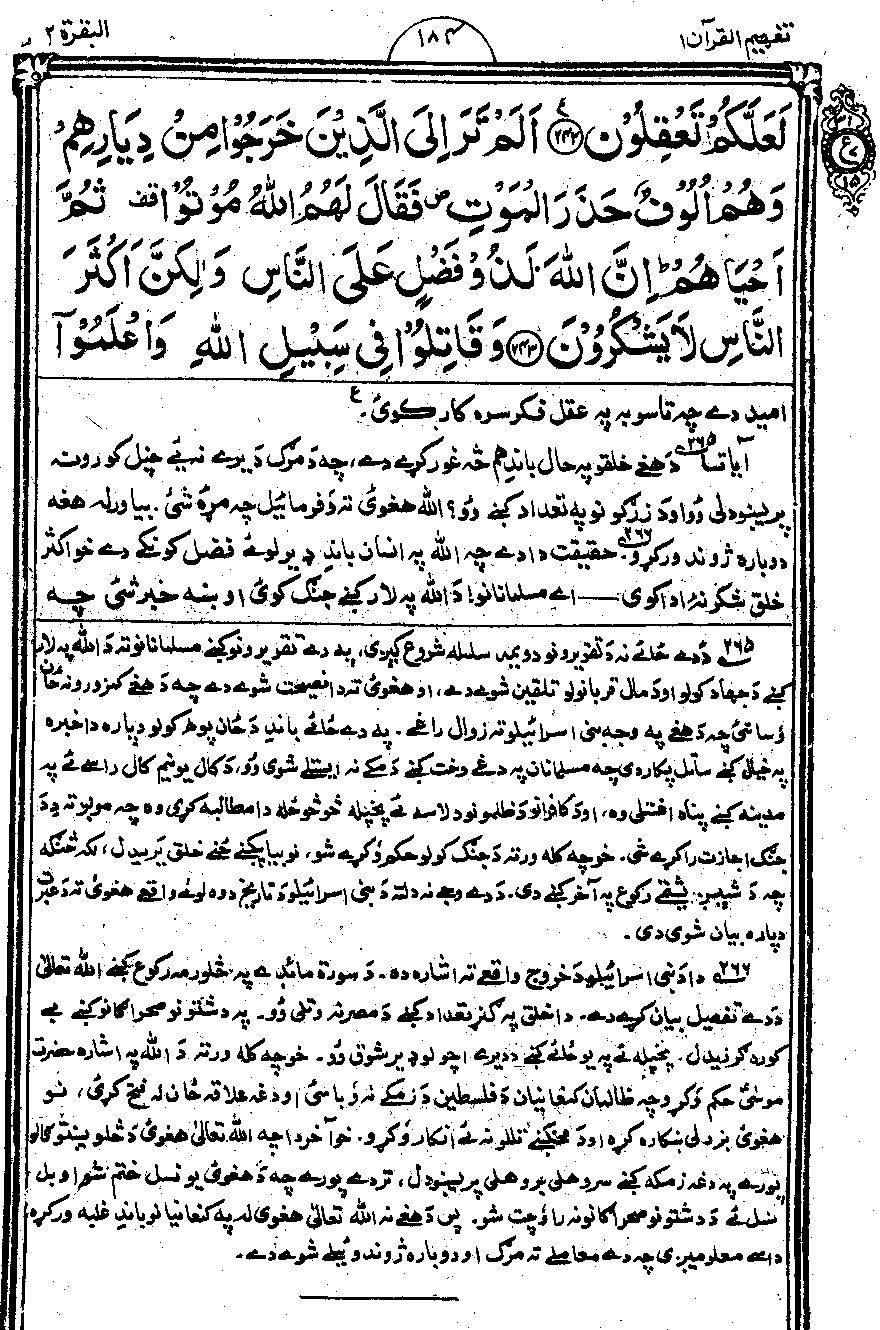 تفهیم القرآن ۱
۱۸۴
البقرة ۲
لَعَلَّكُمْ تَعْقِلُوْنَ ﴿۲۴۲﴾ اَلَمْ تَرَ اِلَى الَّذِيْنَ خَرَجُوْا مِنْ دِيَارِهِمْ
وَهُمْ اُلُوْفٌ حَذَرَ الْمَوْتِ ص فَقَالَ لَهُمُ اللّٰهُ مُوْتُوْا قف ثُمَّ
اَحْيَاهُمْ ط اِنَّ اللّٰهَ لَذُوْ فَضْلٍ عَلَى النَّاسِ وَلٰكِنَّ اَكْثَرَ
النَّاسِ لَا يَشْكُرُوْنَ ﴿۲۴۳﴾ وَقَاتِلُوْا فِيْ سَبِيْلِ اللّٰهِ وَاعْلَمُوْٓا
امید دے چہ تاسو به په عقل فکر سره کار کوئ. ع
آیا تسا ۲۶۵ دَ هغے خلقو په حال باندِ هم څه غور کړے دے، چه دَ مرګ دَ یرے نه ئے خپل کورونه
پریښودلی وُو او دَ زرګونو په تعداد کښے وُو؟ الله هغوئ ته دَ فرمائیل چه مړۀ شئ. بیا ورله هغه
دوباره ژوند ورکړو. ۲۶۶ حقیقت دا دے چه الله په انسان باندِ ډیر لوئے فضل کونکے دے خو اکثر
خلق شکر نۀ ادا کوی — اے مسلمانانو! دَ الله په لار کښے جنګ کوئ او ښه خبر شئ چه
۲۶۵ دَ دے ځائے نه دَ تقریرونو دویمه سلسله شروع کیږی، په دے تقریرونو کښے مسلمانانو ته دَ الله په لار
کښے دَ جهاد کولو او دَ مال قربانولو تلقین شوے دے، او هغوئ ته دا نصیحت شوے دے چه دَ هغے کمزورو نه ځان
وُ ساتئ چه دَ هغے په وجه بنی اسرائیلو ته زوال راغے. په دے ځائے باندِ دَ ځان پوهـ کولو دپاره دا خبره
په خیال کښے ساتل پکار دی چه مسلمانان په دغے وخت کښے دَ مکے نه ایستلے شوی وُو، دَ کال یو نیم کال راسے ئے په
مدینه کښے پناه اخستی وه، او دَ کافرانو دَ ظلمونو دَ لاسه ئے پخپله څو څو ځله دا مطالبه کړی وه چه مونږ ته دِ دَ
جنګ اجازت راکړے شی. خو چه کله ورته دَ جنګ کولو حکم وُکړے شو، نو بیا پکښے ځنے خلق یریدل، لکه څنګه
چه دَ شپږ ویشتمے رکوع په آخر کښے دی. دَ دے وجے نه دلته دَ بنی اسرائیلو دَ تاریخ دوه لوئے واقعے هغوئ ته دَ عبرت
دپاره بیان شوی دی.
۲۶۶ دا دَ بنی اسرائیلو دَ خروج واقعے ته اشاره ده. دَ سورة مائدے په څلورمه رکوع کښے الله تعالیٰ
دَ دے تفصیل بیان کړے دے. دا خلق په ګنړ تعداد کښے دَ مصر نه وتلی وُو. په دشتو نو صحراګانو کښے بے
کوره ګرزیدل. پخپله ئے په یو ځائے کښے دَ دیرے اچولو ډیر شوق وُو. خو چه کله ورته دَ الله په اشاره حضرت
موسیٰؑ حکم وُکړو چه ظالمان کنعانیان دَ فلسطین دَ زمکے نه وُباسئ او دغه علاقه ځان له فتح کړئ، نو
هغوئ بزدلی ښکاره کړه او دَ مخکښے تللو نه ئے انکار وُکړو. خو آخر دا چه الله تعالیٰ هغوئ دَ څلویښتو کالو
پورے په دغه زمکه کښے سر وهلی پر وهلی پریښودل، تر دے پورے چه دَ هغوئ یو نسل ختم شو او بل
نسل ئے دَ دشتو نو صحراګانو نه را وُچت شو. پس دَ هغے نه الله تعالیٰ هغوئ له په کنعانیانو باندِ غلبه ورکړه
داسے معلومیږی چه دے معاملے ته مرګ او دوباره ژوند وئیلے شوے دے.